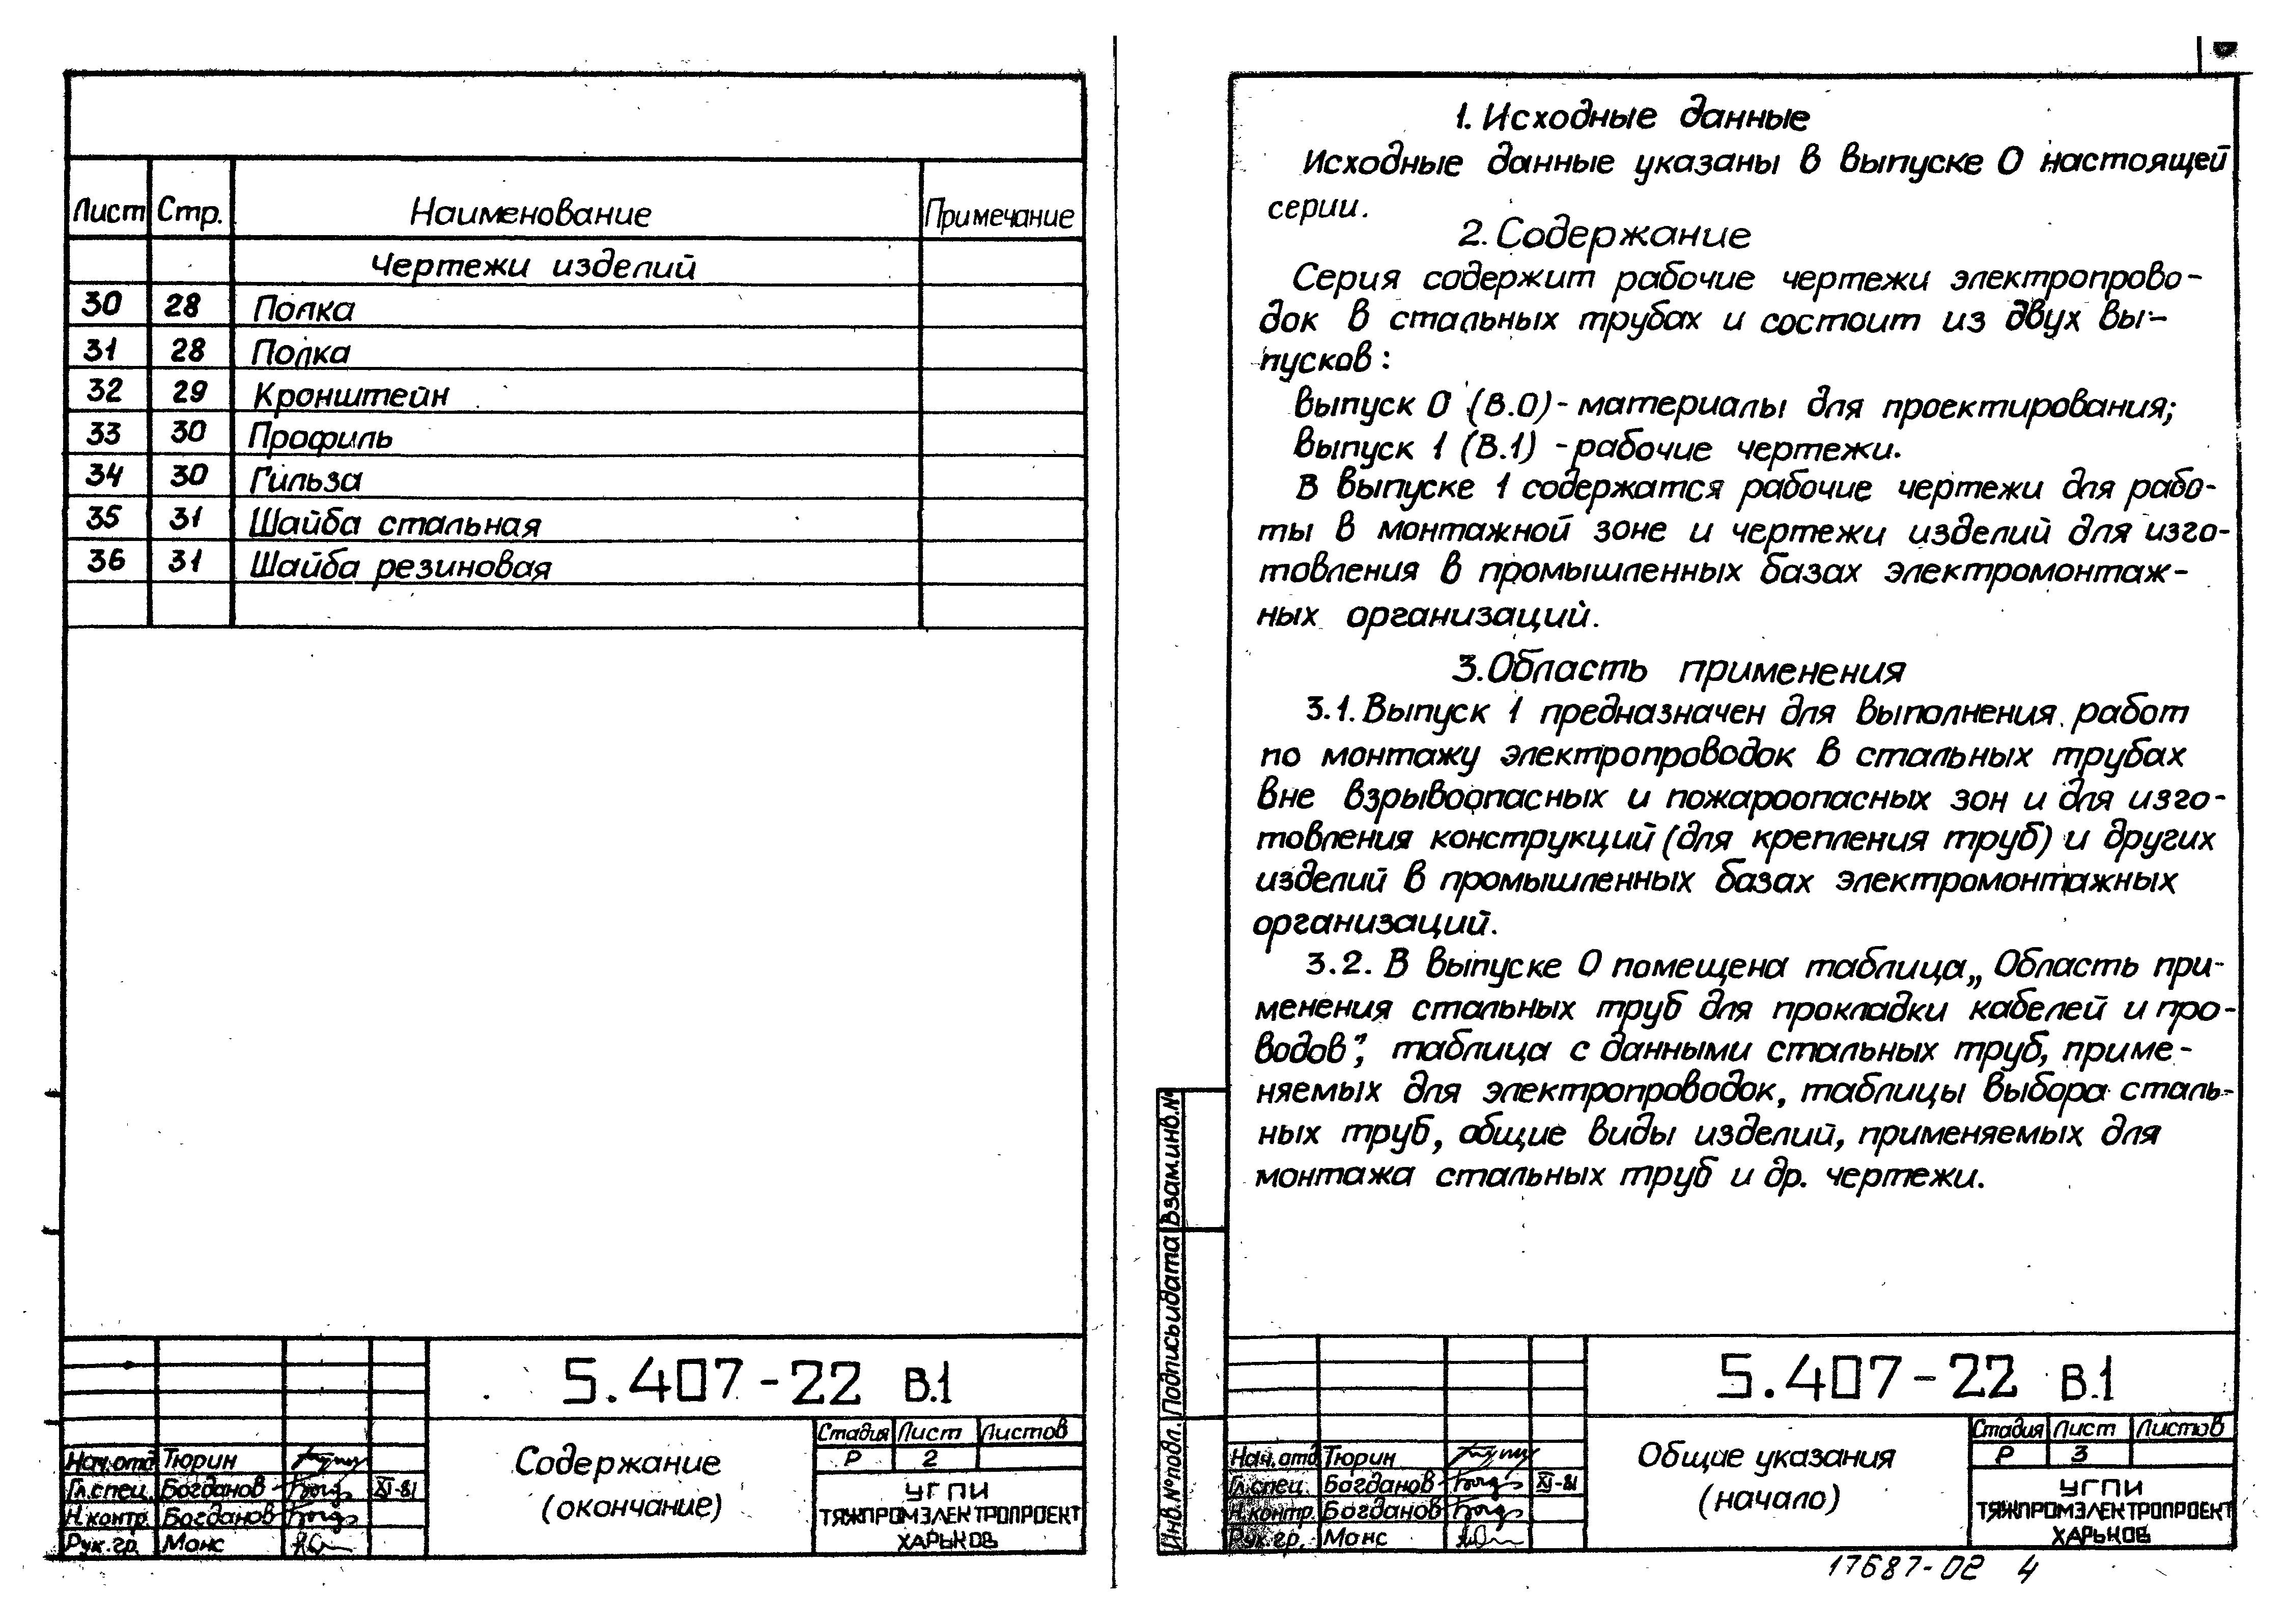 Лист Стр. Наименование Примечание
Чертежи изделий
30 28 Полка
31 28 Полка
32 29 Кронштейн
33 30 Профиль
34 30 Гильза
35 31 Шайба стальная
36 31 Шайба резиновая
5.407-22 В.1
Содержание
(окончание)
Стадия Лист Листов
Р 2
УГПИ
ТЯЖПРОМЭЛЕКТРОПРОЕКТ
ХАРЬКОВ
Нач.отд Тюрин
Гл.спец. Богданов XI-81
Н.контр. Богданов
Рук.гр. Монс
1. Исходные данные
Исходные данные указаны в выпуске 0 настоящей
серии.
2. Содержание
Серия содержит рабочие чертежи электропрово-
док в стальных трубах и состоит из двух вы-
пусков:
выпуск 0 (В.0) - материалы для проектирования;
выпуск 1 (В.1) - рабочие чертежи.
В выпуске 1 содержатся рабочие чертежи для рабо-
ты в монтажной зоне и чертежи изделий для изго-
товления в промышленных базах электромонтаж-
ных организаций.
3. Область применения
3.1. Выпуск 1 предназначен для выполнения работ
по монтажу электропроводок в стальных трубах
вне взрывоопасных и пожароопасных зон и для изго-
товления конструкций (для крепления труб) и других
изделий в промышленных базах электромонтажных
организаций.
3.2. В выпуске 0 помещена таблица „Область при-
менения стальных труб для прокладки кабелей и про-
водов", таблица с данными стальных труб, приме-
няемых для электропроводок, таблицы выбора сталь-
ных труб, общие виды изделий, применяемых для
монтажа стальных труб и др. чертежи.
Взам.инв.№
Подпись и дата
Инв.№ подл.
5.407-22 В.1
Общие указания
(начало)
Стадия Лист Листов
Р 3
УГПИ
ТЯЖПРОМЭЛЕКТРОПРОЕКТ
ХАРЬКОВ
Нач.отд Тюрин
Гл.спец. Богданов XI-81
Н.контр. Богданов
Рук.гр. Монс
17687-02 4